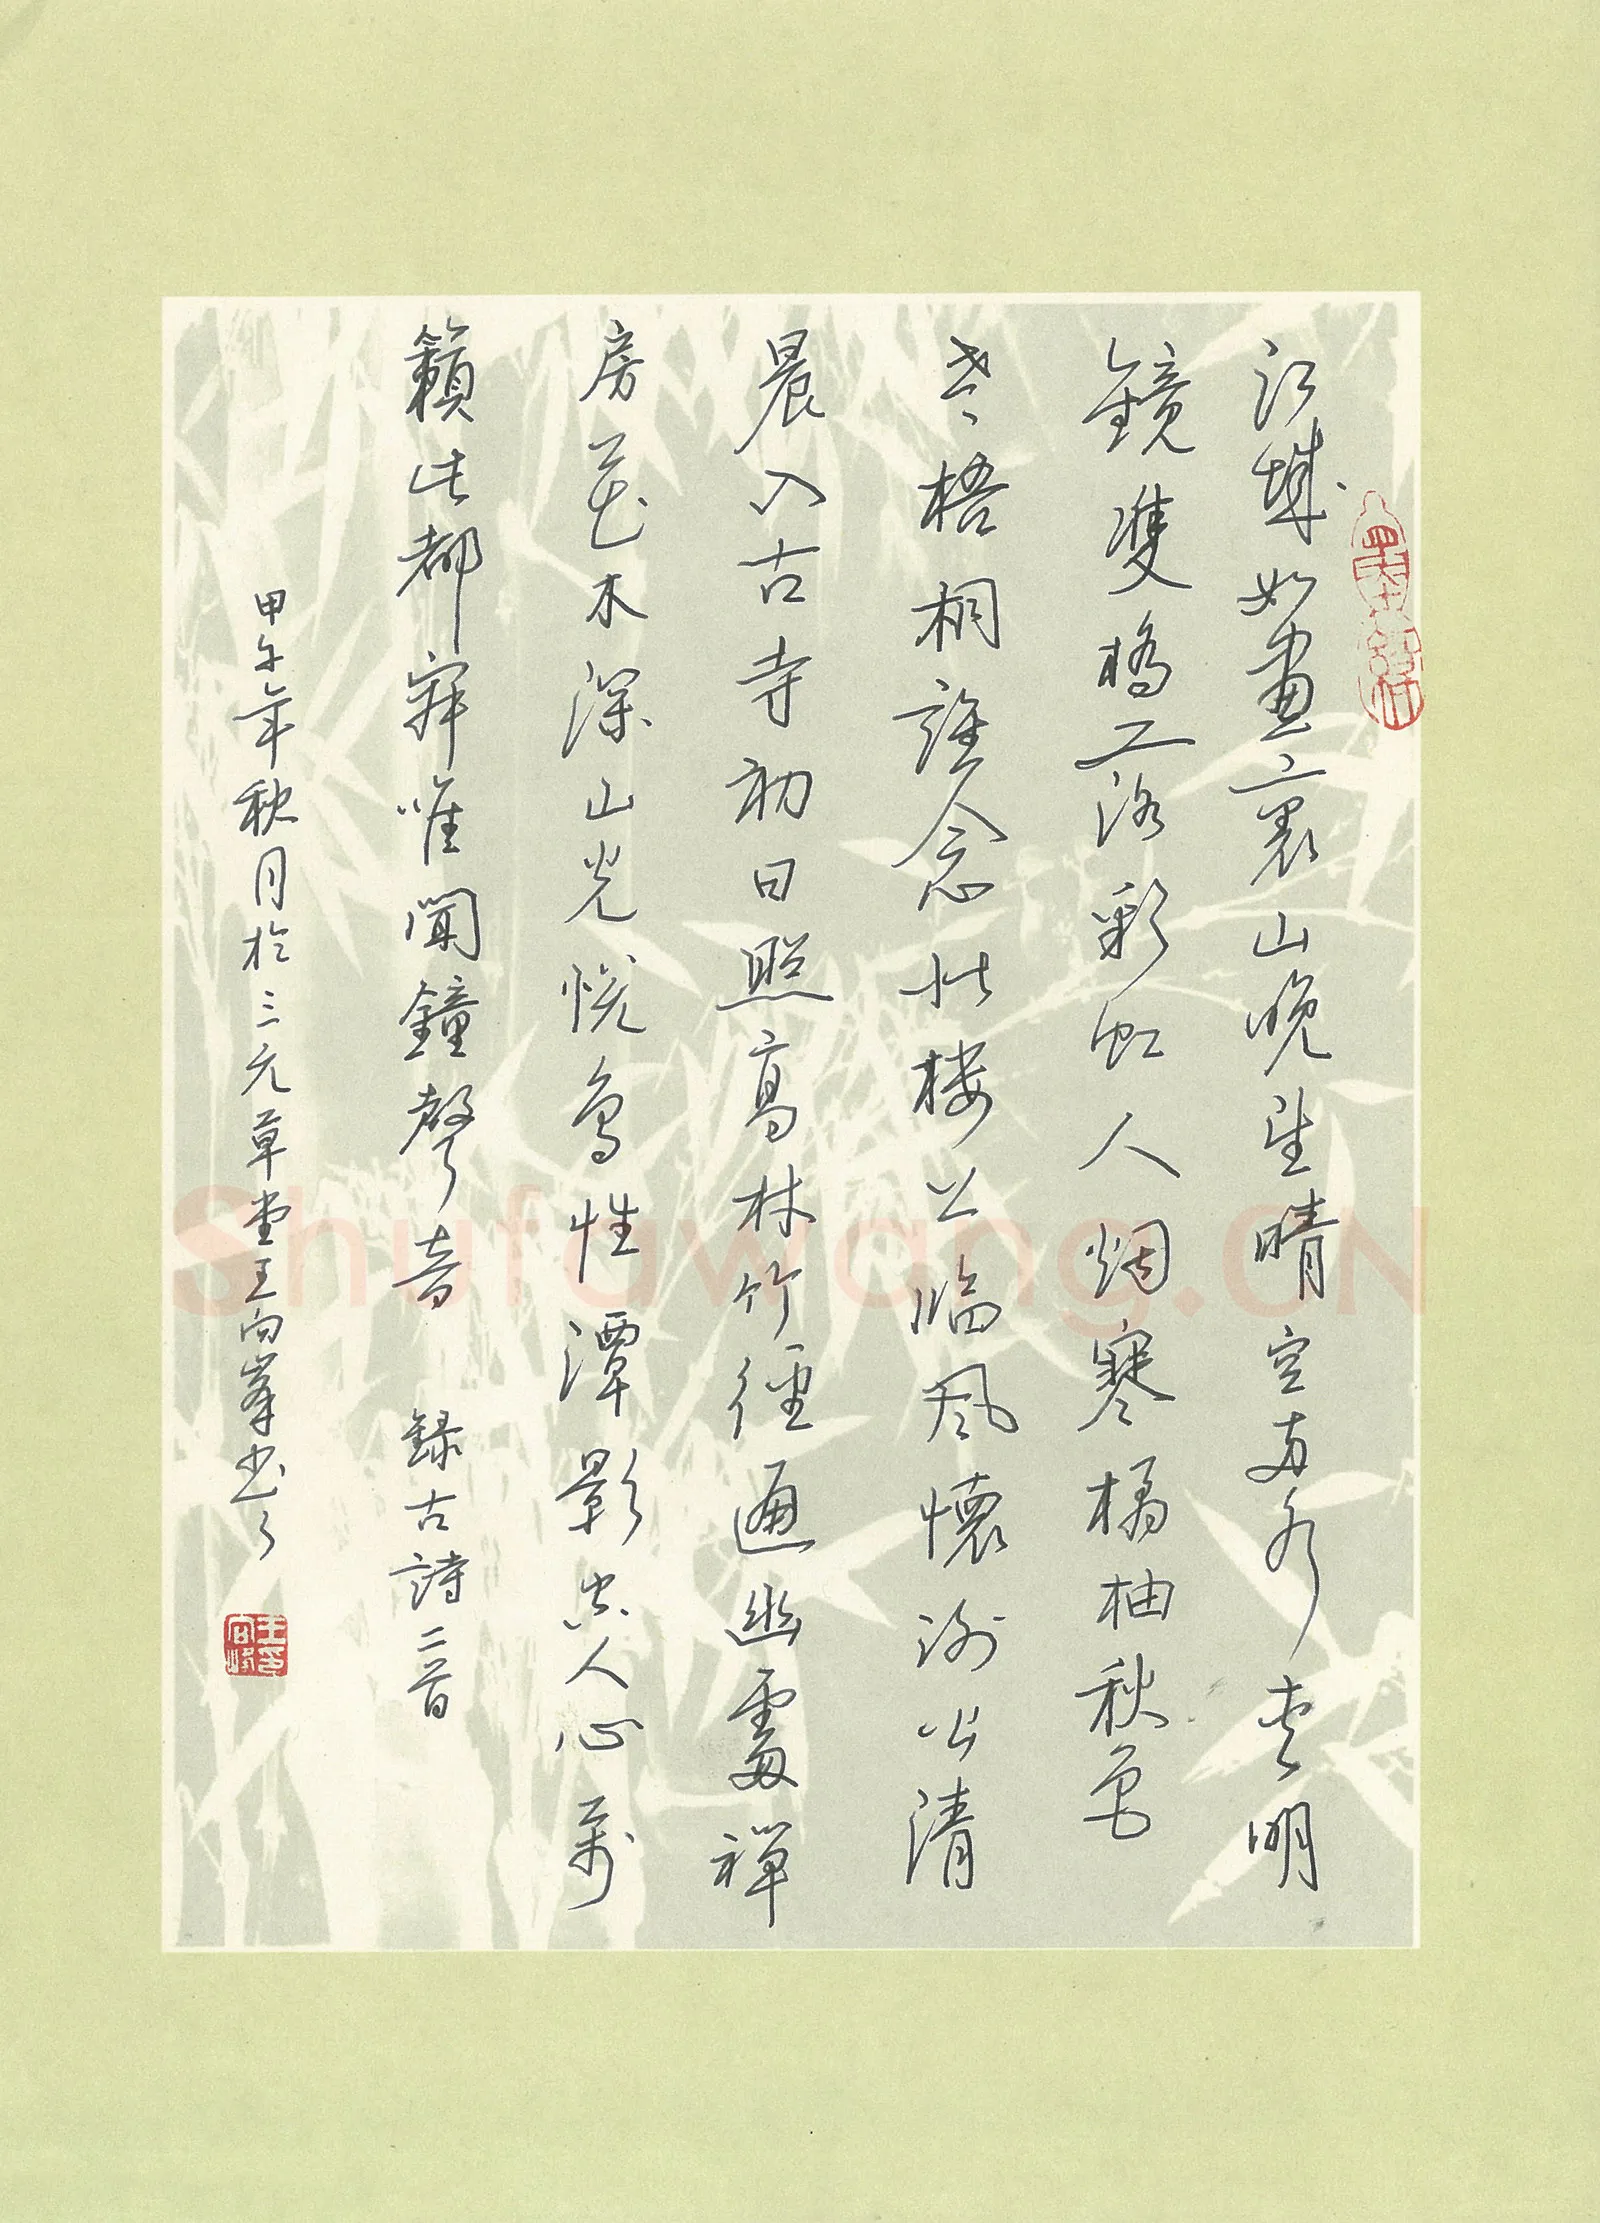 江城如畫裏山晚望晴空兩水夾明
鏡雙橋落彩虹人烟寒橘柚秋色
老梧桐誰念北楼上臨風懷謝公清
晨入古寺初日照高林竹徑通幽處禪
房花木深山光悅鳥性潭影空人心萬
籟此都寂唯聞鐘聲音 錄古詩二首
甲午年秋月於三元草堂王向峯書
王印向峰
Shufawang.CN